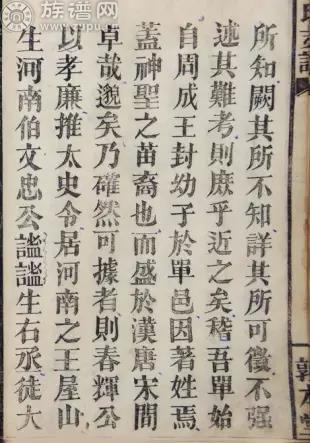 所知闕其所不知詳其所可徵不强
述其難考則庶乎近之矣稽吾單始
自周成王封幼子於單邑因著姓焉
蓋神聖之苗裔也而盛於漢唐宋間
卓哉邈矣乃確然可據者則春輝公
以孝廉推太史令居河南之王屋山
生河南伯文忠公謐謐生右丞徒大
族谱网
zupu.cn